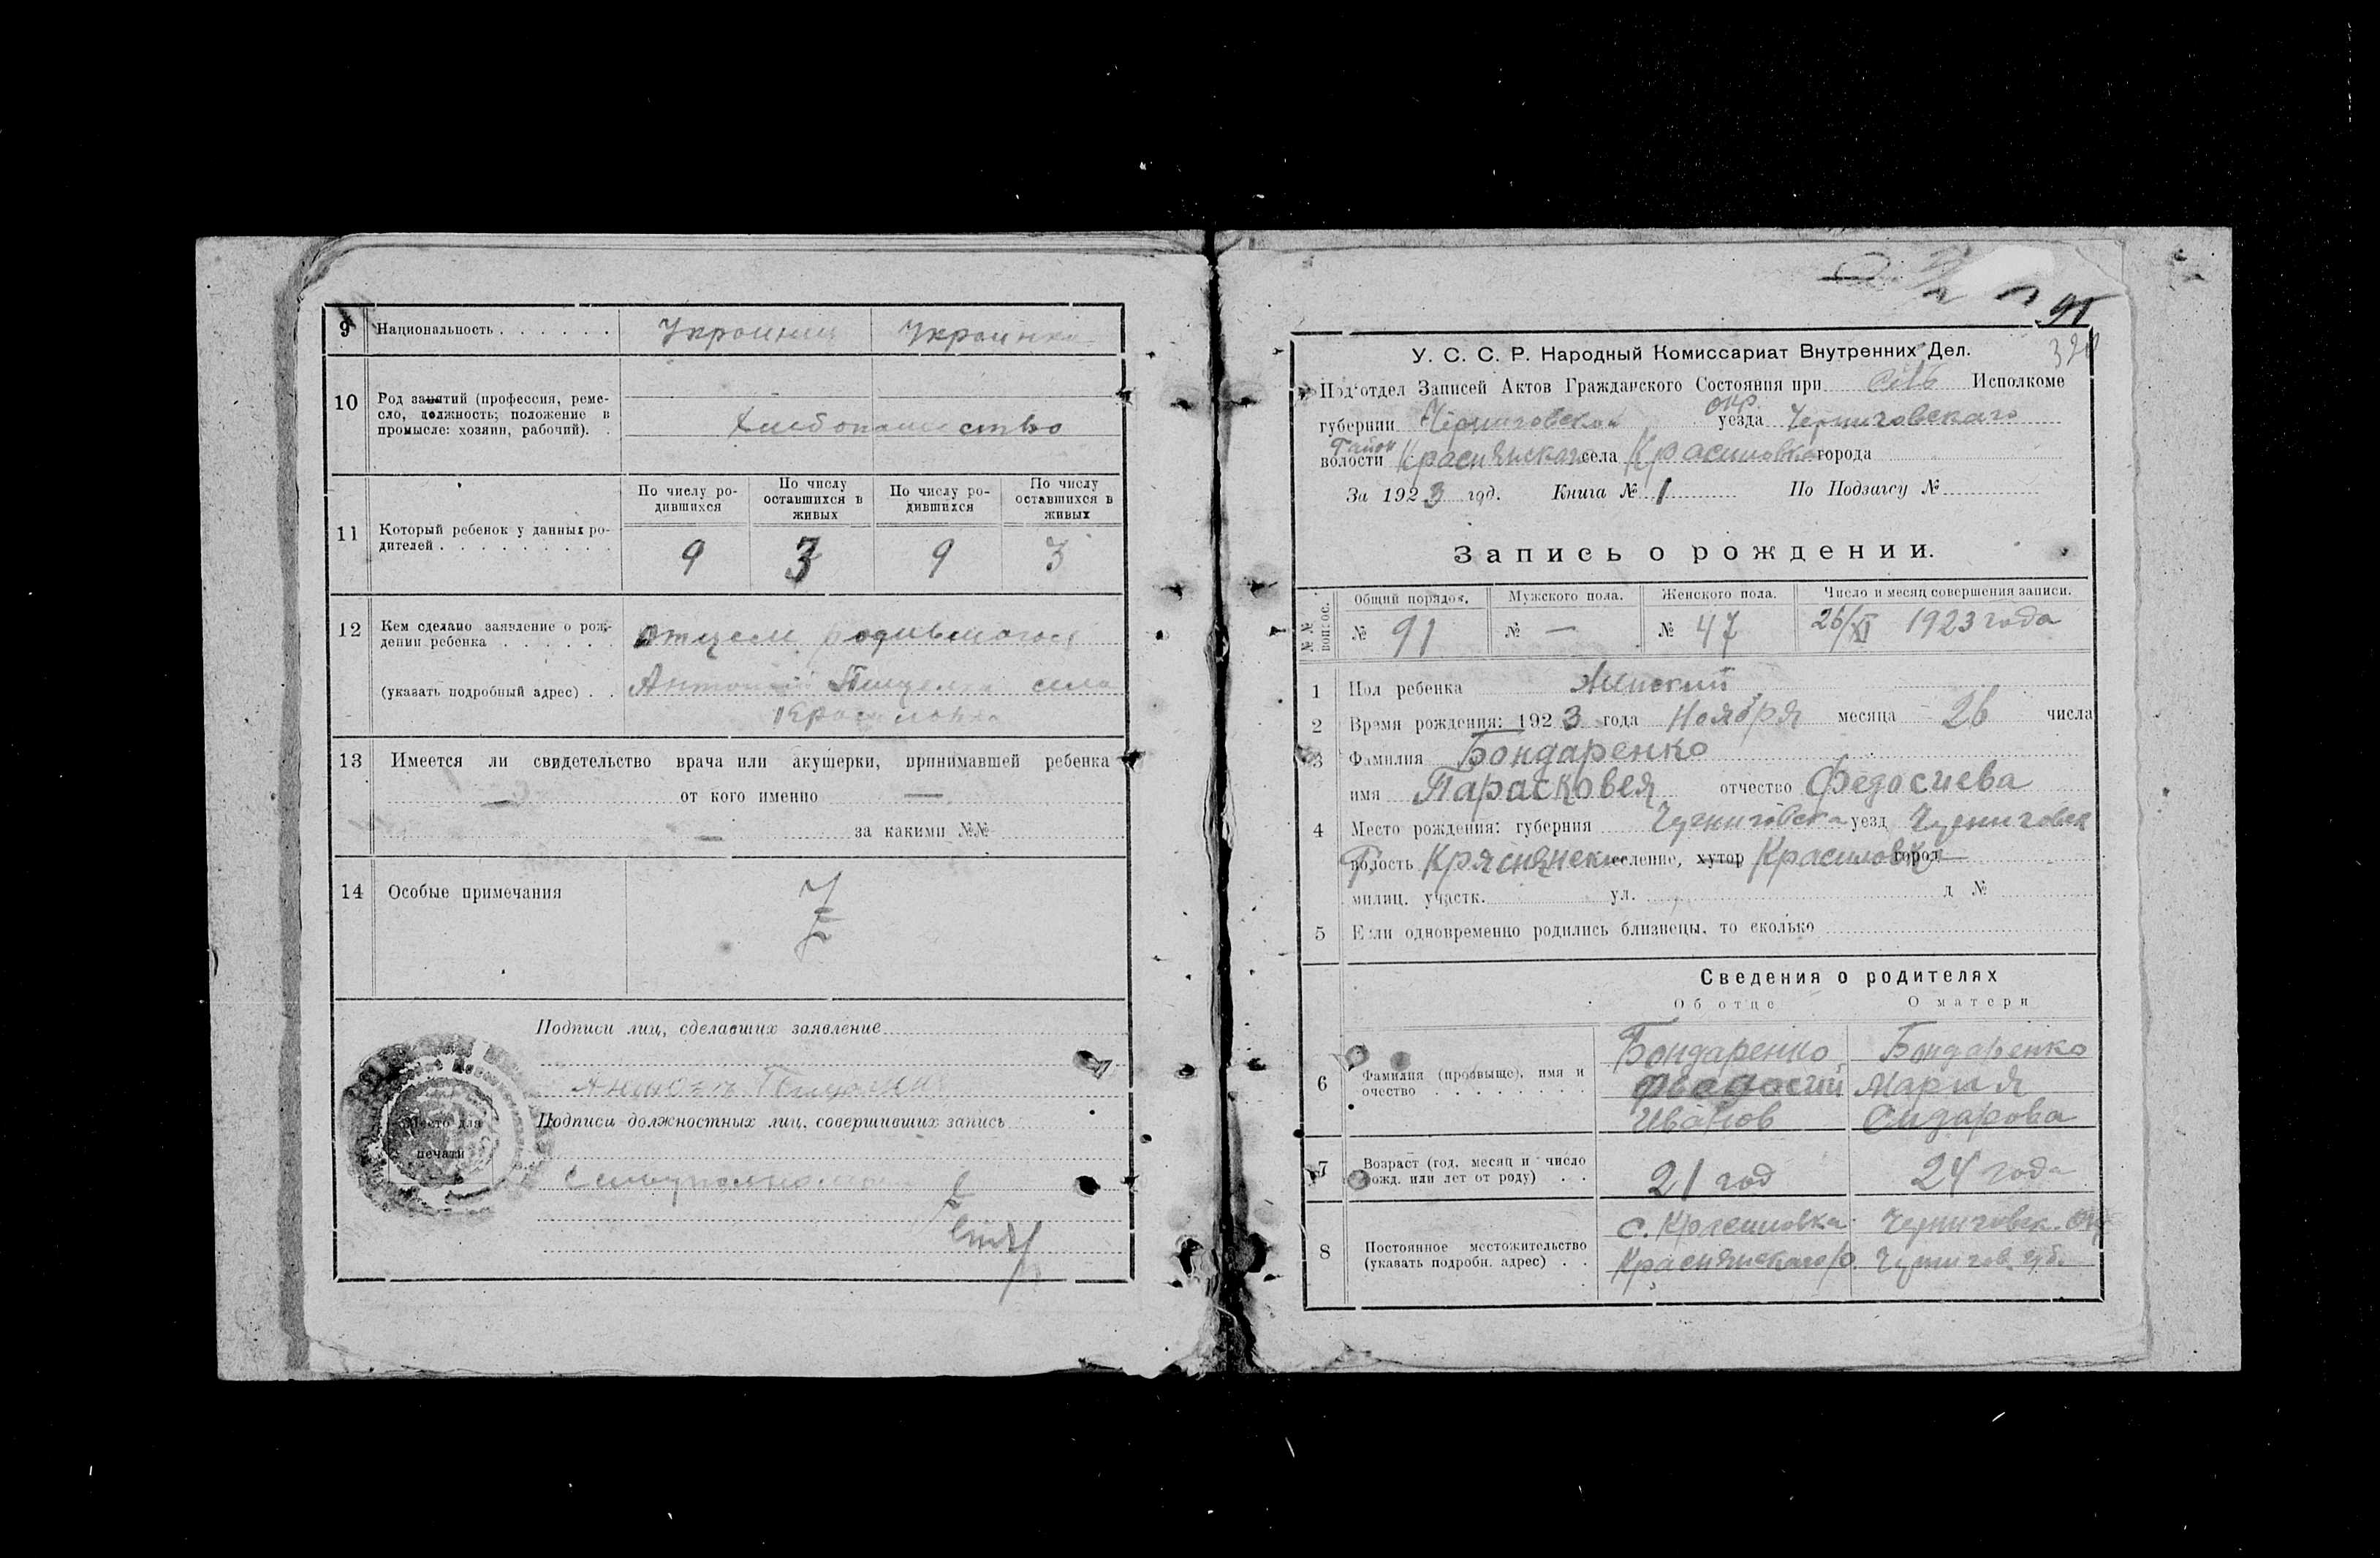 9 Национальность . . . . . . Украинец Украинка
10 Род занятий (профессия, реме-
сло, должность; положение в
промысле: хозяин, рабочий). .
Хлебопашество
11 Который ребенок у данных ро-
дителей . . . . . . . . .
По числу ро-
дившихся
По числу
оставшихся в
живых
По числу ро-
дившихся
По числу
оставшихся в
живых
9 3 9 3
12 Кем сделано заявление о рож-
дении ребенка . . . . . .
отцем родившагося
(указать подробный адрес) . . Антоний села
Красиловка
13 Имеется ли свидетельство врача или акушерки, принимавшей ребенка
— от кого именно —
— за какими №№
14 Особые примечания
Z
Подписи лиц, сделавших заявление
Подписи должностных лиц, совершивших запись
Место для
печати
91
У. С. С. Р. Народный Комиссариат Внутренних Дел.
Под'отдел Записей Актов Гражданского Состояния при Сіль Исполкоме
губернии Черниговской окр. уезда Черниговскаго
Район волости Краснянскаго села Красиловка города
За 1923 год. Книга № 1 По Подзагсу №
Запись о рождении.
№№ вопрос.
Общий порядок. Мужского пола. Женского пола. Число и месяц совершения записи.
№ 91 № — № 47 26/XI 1923 года
1 Пол ребенка Женский
2 Время рождения: 1923 года Ноября месяца 26 числа
3 Фамилия Бондаренко
имя Парасковея отчество Федосиева
4 Место рождения: губерния Черниговска уезд Черниговск
Р. волость Кряснянск селение, хутор Красиловка город —
милиц. участк. ул. д №
5 Если одновременно родились близнецы, то сколько
Сведения о родителях
Об отце О матери
6 Фамилия (прозвыще), имя и
очество . . . . . . . .
Бондаренко Бондаренко
Феодосий Мария
Иванов Сидарова
7 Возраст (год, месяц и число
рожд. или лет от роду) . .
21 год 24 года
8 Постоянное местожительство
(указать подробн. адрес) . .
с. Красиловка Черниговск. Окр
Краснянскаго р. Чернигов. губ.